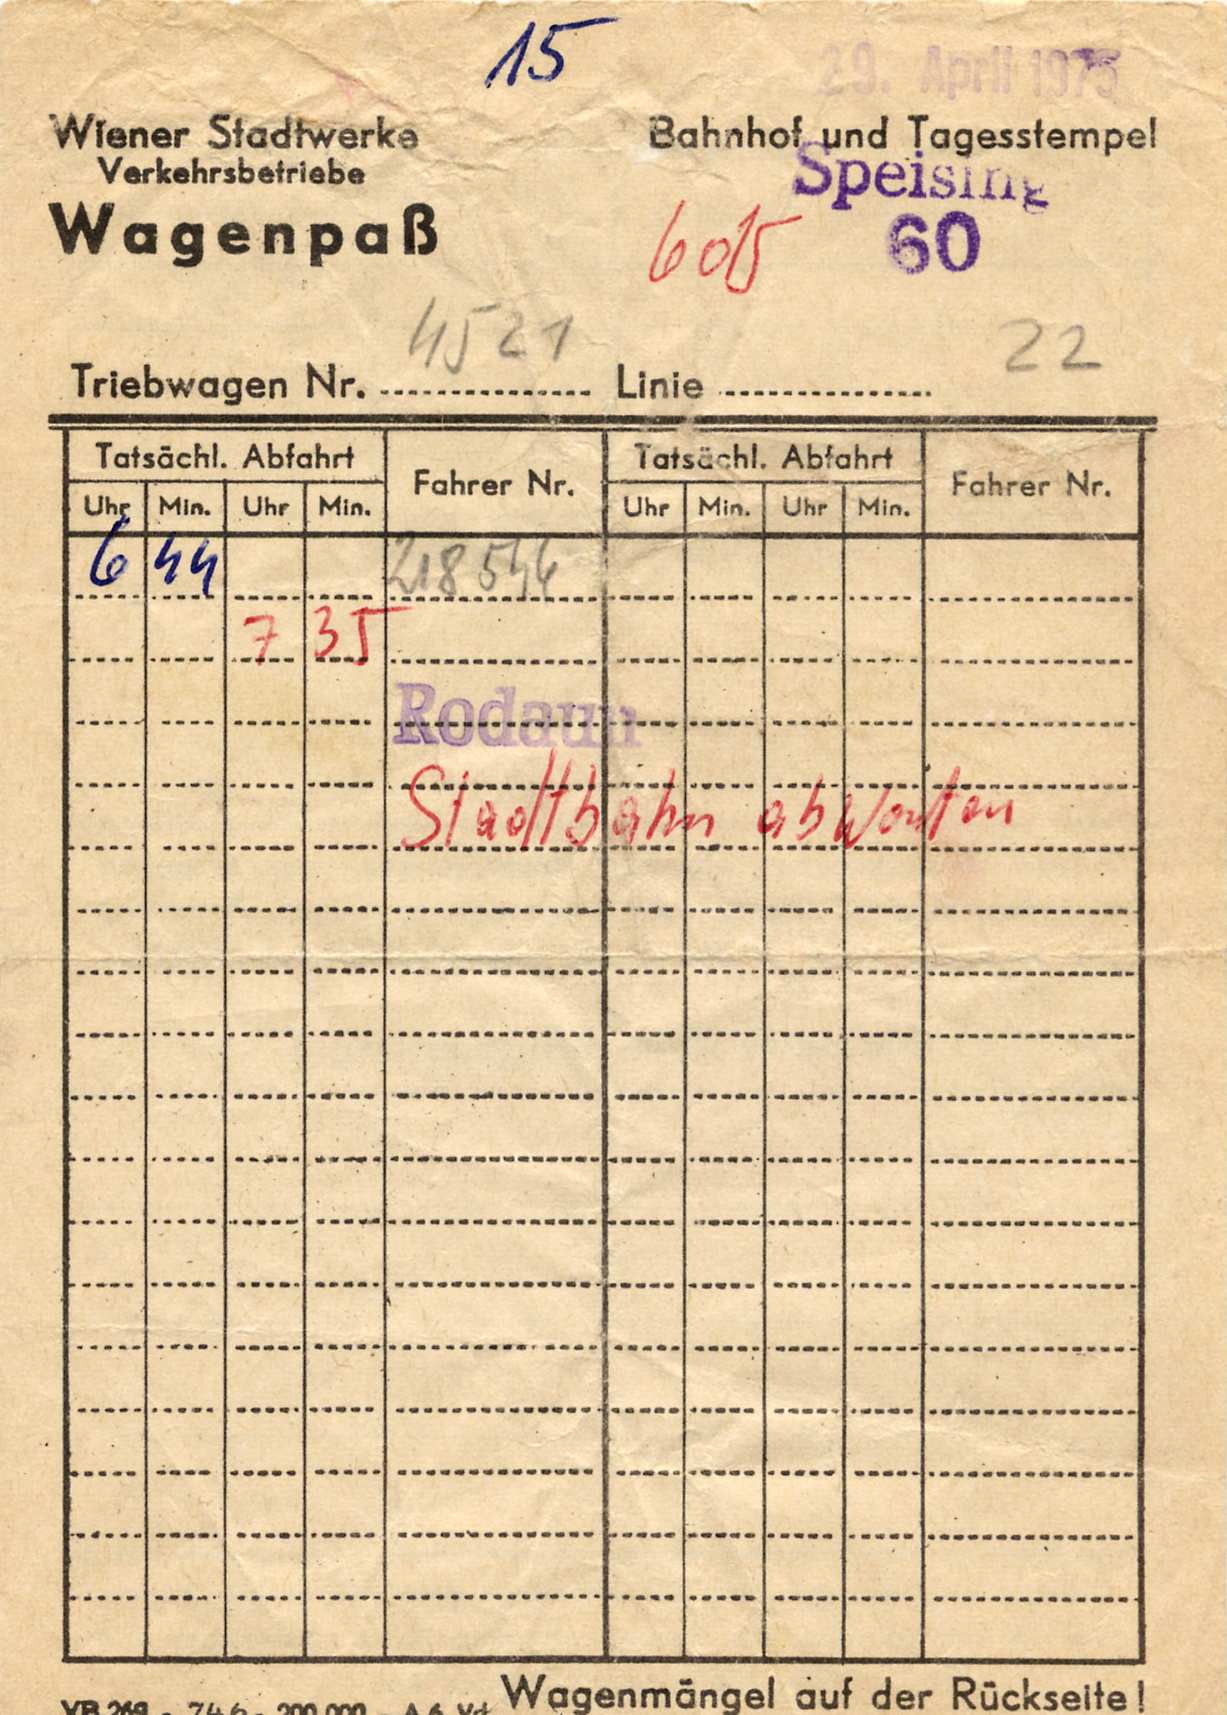 15
29. April 1975
Wiener Stadtwerke
Verkehrsbetriebe
Wagenpaß
Bahnhof und Tagesstempel
Speising
60
605
4521
22
Triebwagen Nr. Linie
Tatsächl. Abfahrt Fahrer Nr. Tatsächl. Abfahrt Fahrer Nr.
Uhr Min. Uhr Min. Uhr Min. Uhr Min.
6 44 218544
7 35
Rodaun
Stadtbahn abwarten
VB 269 - 746 - 200.000 Wagenmängel auf der Rückseite!